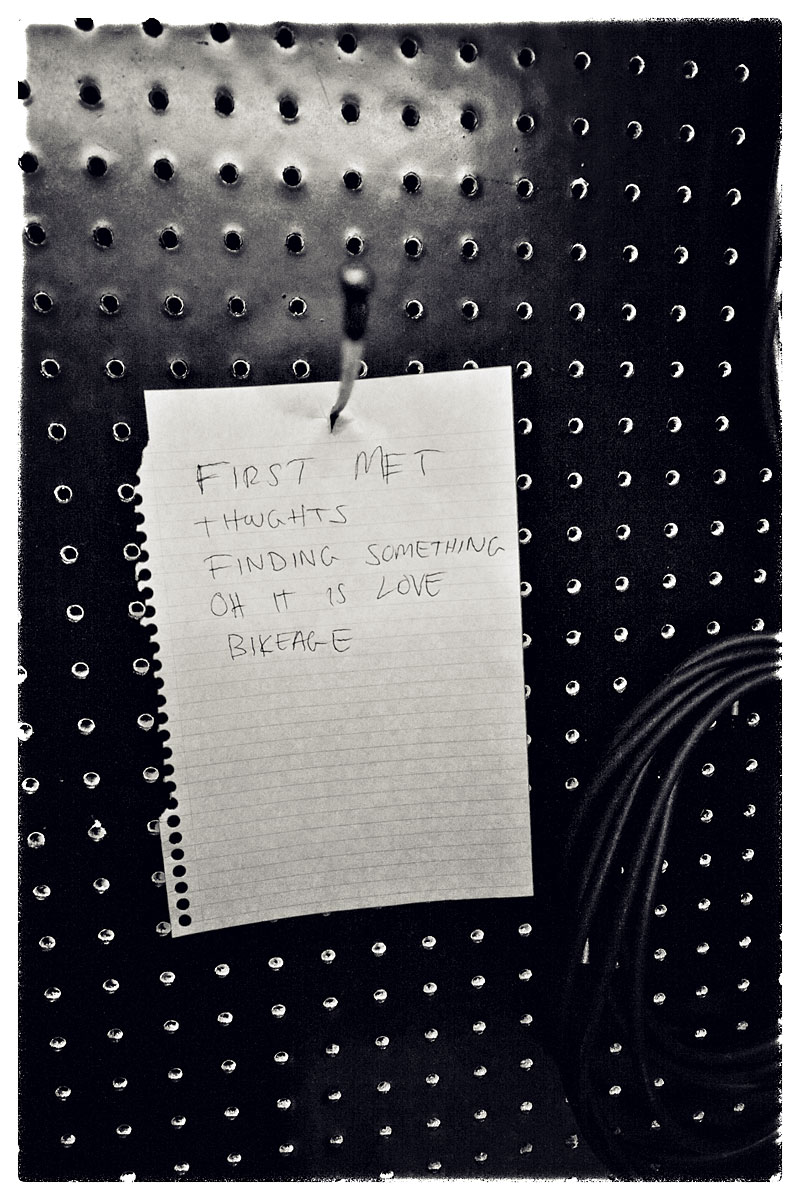 FIRST MET
THOUGHTS
FINDING SOMETHING
OH IT IS LOVE
BIKEAGE